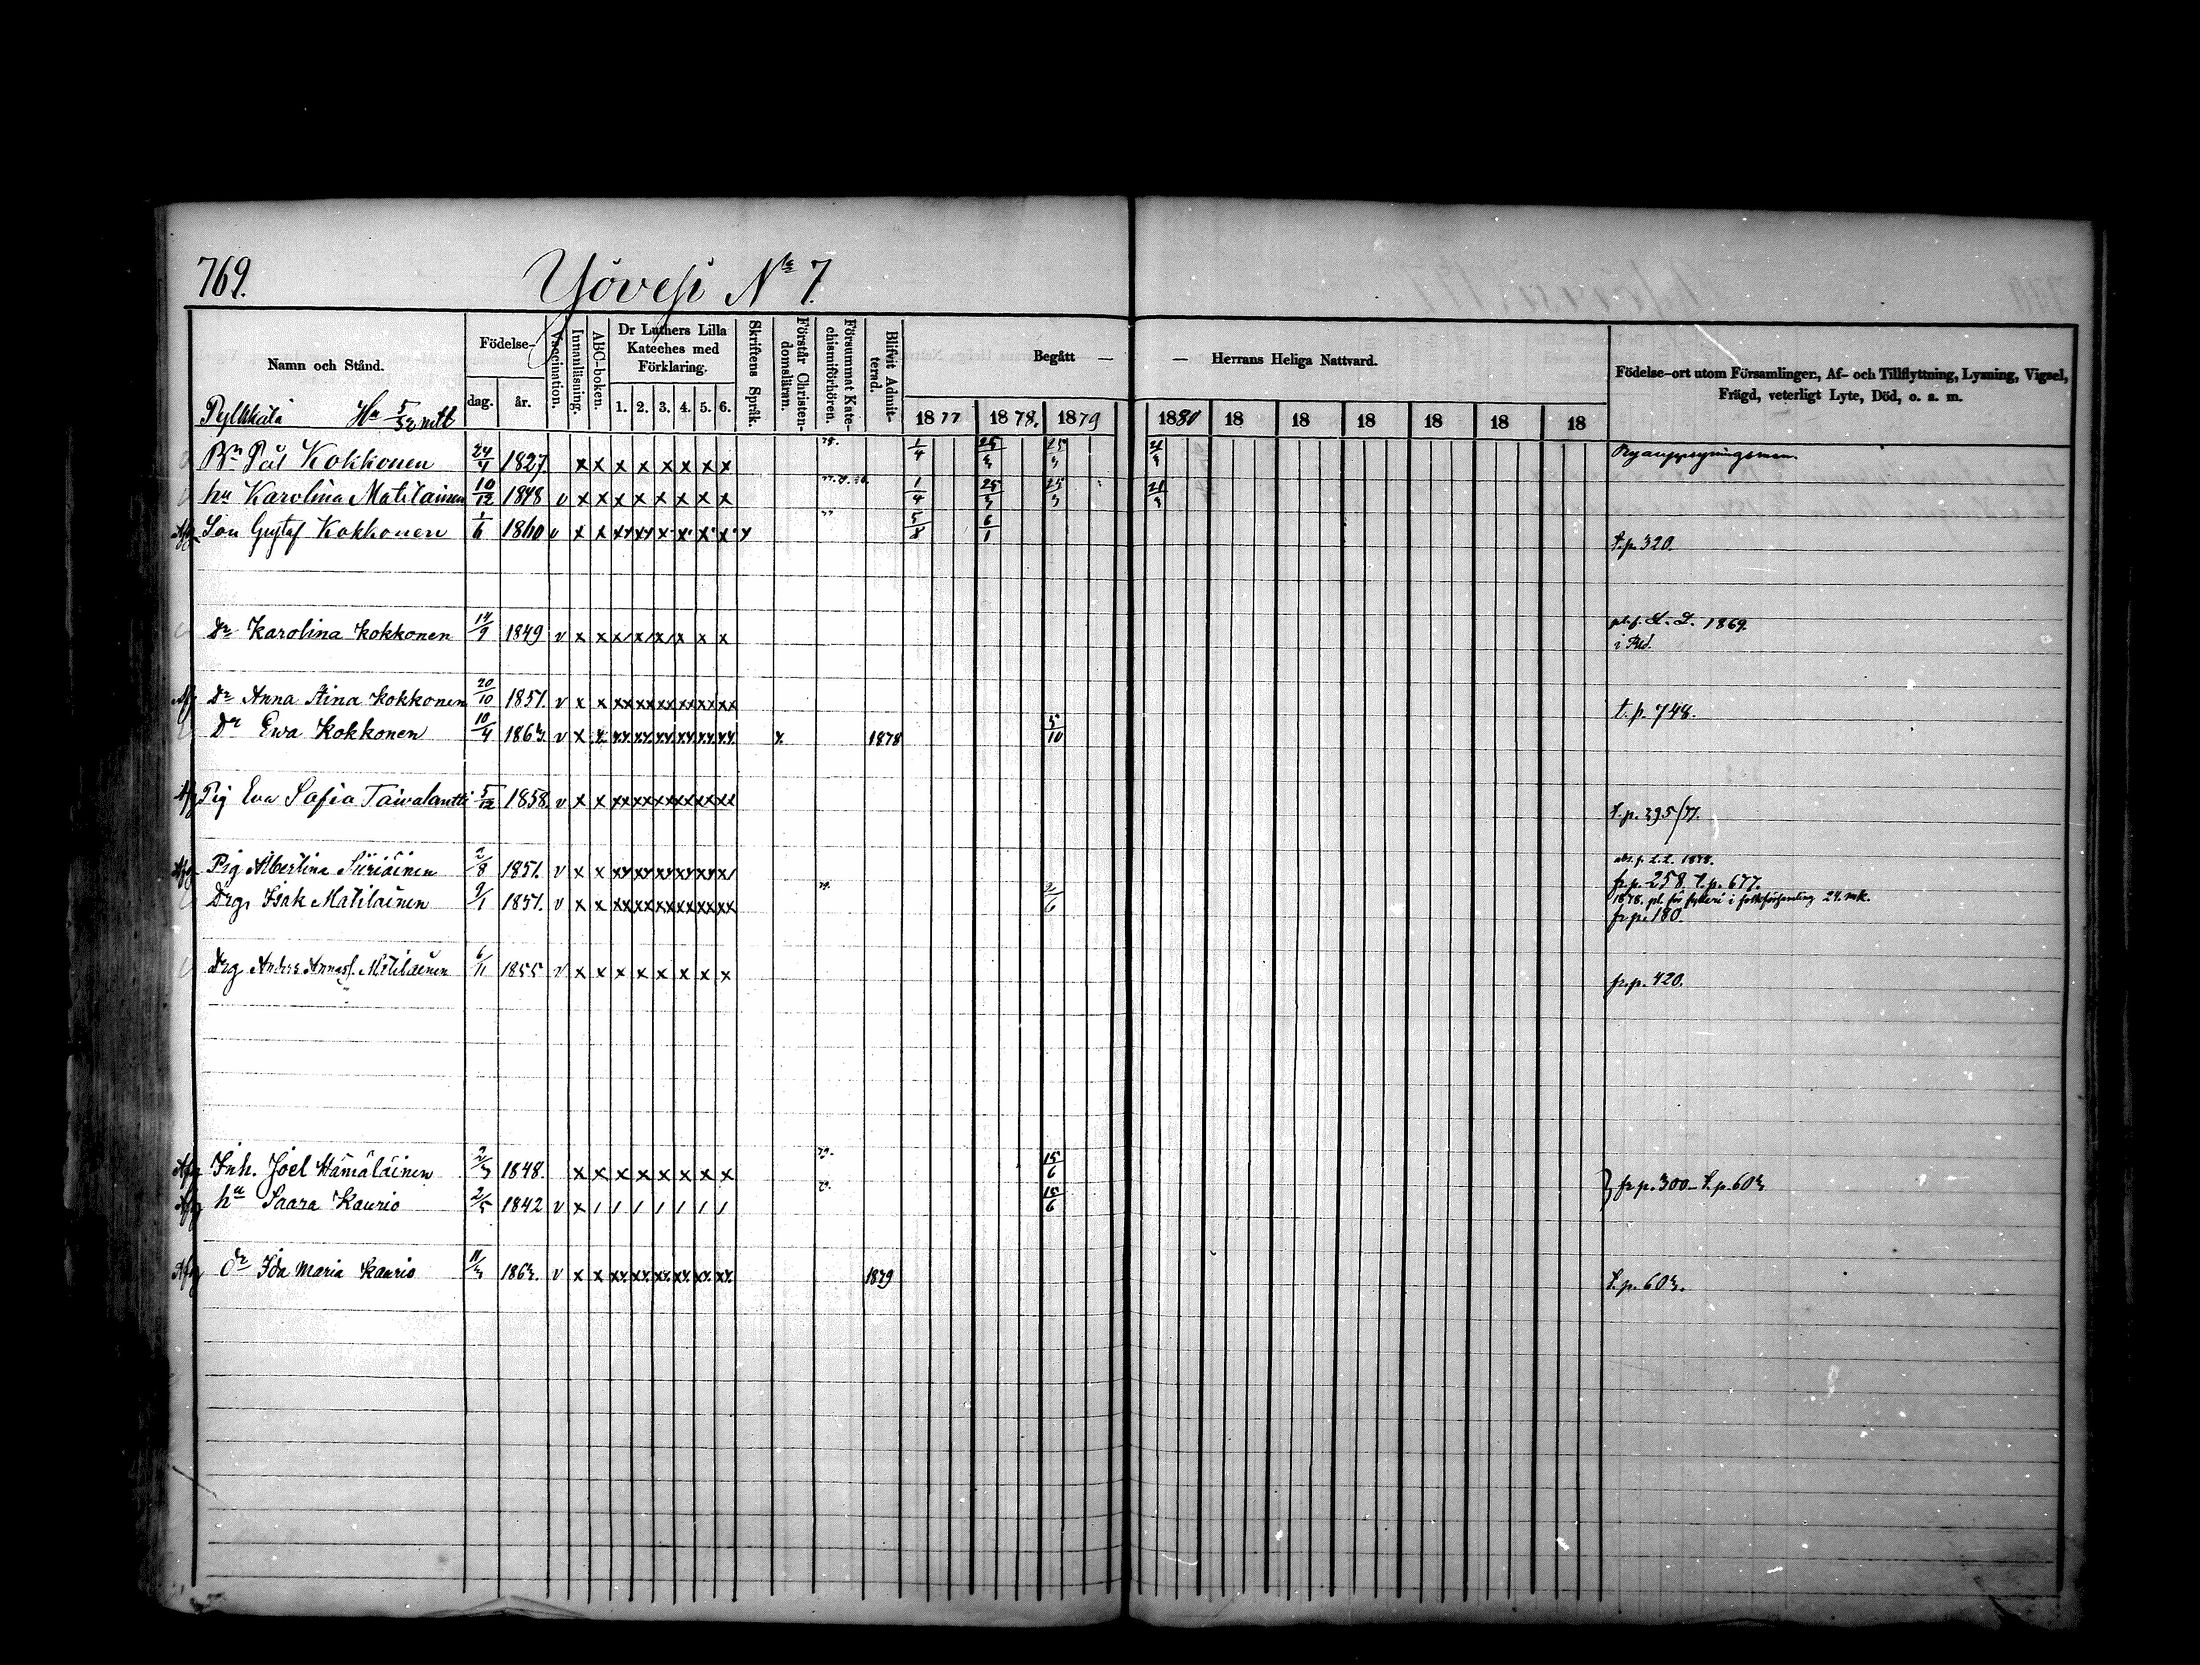 769. Yövesi No 7.
Namn och Stånd.
Födelse-
dag.
år.
Vaccination.
Innanläsning.
ABC-boken.
Dr Luthers Lilla Kateches med Förklaring.
1. 2. 3. 4. 5. 6.
Skriftens Språk.
Förstår Christendomsläran.
Försummat Katechismiförhören.
Blifvit Admitterad.
Begått — — Herrans Heliga Nattvard.
1877 1878. 1879 1880 18 18 18 18 18 18
Födelse-ort utom Församlingen, Af- och Tillflyttning, Lysning, Vigsel,
Frägd, veterligt Lyte, Död, o. s. m.
Pylkkälä
Bn Pål Kokkonen 24/4 1827 x x x x x x x x 78. 1/4 25/3 25/3 21/3
hu Karolina Matilainen 10/12 1848 v x x x x x x x x 1/4 25/3 25/3 21/3
Afg Son Gustaf Kokkonen 1/6 1860 v x x 77 5/8 6/1 t.p. 320.
Dr Karolina Kokkonen 14/9 1849 v x x x x x x x x 1869.
Afg Dr Anna Stina Kokkonen 20/10 1851. v x x xx xx xx xx xx xx t. p. 748.
Dr Ewa Kokkonen 10/4 1863. v x x xx xx xx xx xx xx x 1878 5/10
Afg Pig Eva Sofia Taivalantti 5/12 1858. v x x xx xx xx xx xx xx t. p. 395/77.
1878.
Afg Pig Albertina Siiriäinen 2/8 1851. v x x xx xx xx xx xx x/ fr.p. 258. t. p. 677.
Drg. Isak Matilainen 9/1 1851. v x x xx xx xx xx xx xx 79. 2/6 1878. pl. för fylleri i folkförsamling 24. mk.
fr. p. 180.
Drg Anders Matilainen 6/11 1855 v x x x x x x x x fr. p. 420.
Afg Inh. Joel Hämäläinen 2/3 1848. x x x x x x x x 79. 15/6
Afg hu Saara Kaurio 2/5 1842 v x / / / / / / / 79. 15/6 } fr p. 300 - t. p. 603
Afg dr Ida Maria Kaurio 11/3 1863. v x x xx xx xx xx xx xx 1879 t. p. 603.